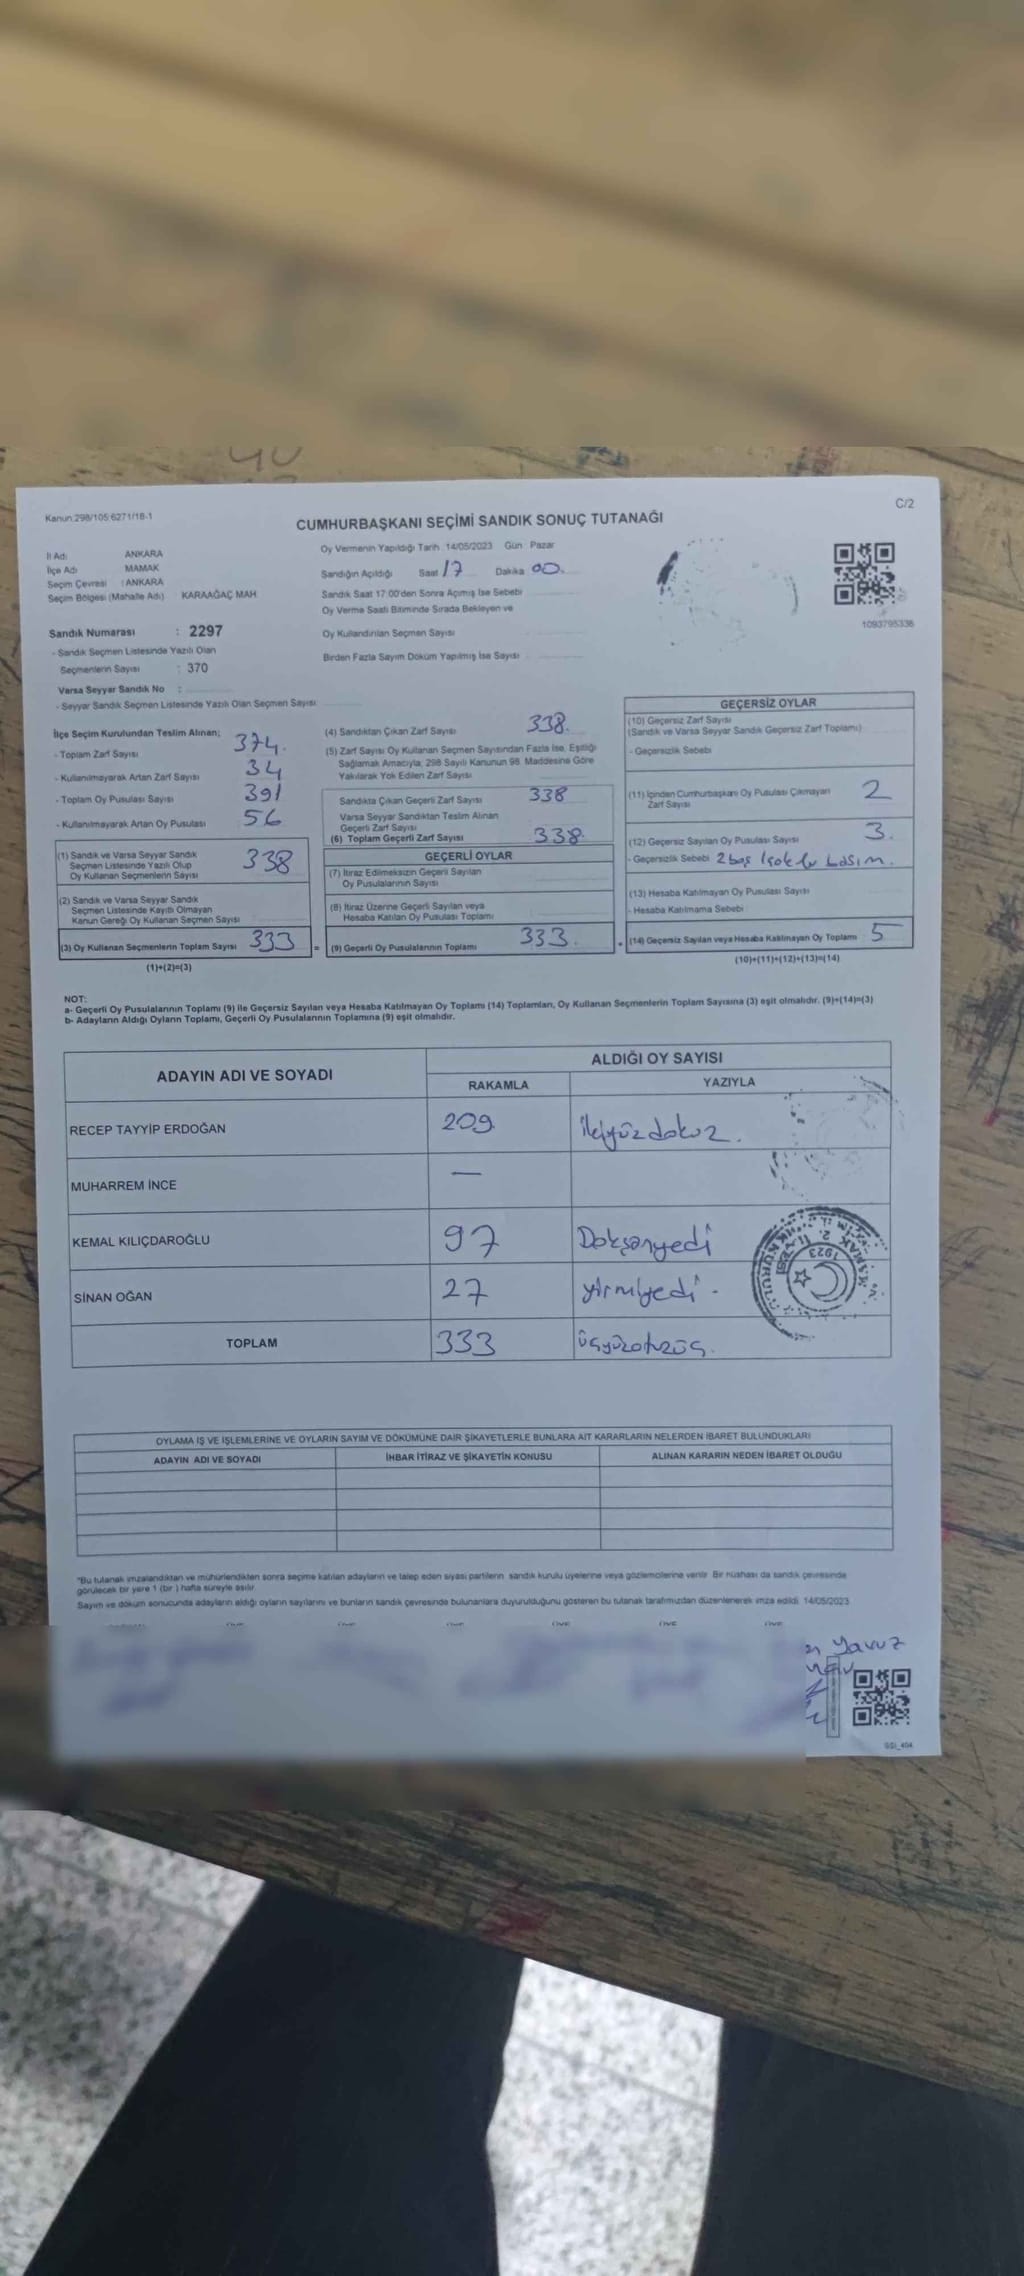 40
Kanun:298/105:6271/18-1
C/2
CUMHURBAŞKANI SEÇİMİ SANDIK SONUÇ TUTANAĞI
İl Adı ANKARA
İlçe Adı MAMAK
Seçim Çevresi : ANKARA
Seçim Bölgesi (Mahalle Adı) KARAAĞAÇ MAH
Sandık Numarası : 2297
- Sandık Seçmen Listesinde Yazılı Olan
Seçmenlerin Sayısı : 370
Varsa Seyyar Sandık No :
- Seyyar Sandık Seçmen Listesinde Yazılı Olan Seçmen Sayısı
Oy Vermenin Yapıldığı Tarih :14/05/2023 Gün Pazar
Sandığın Açıldığı Saat 17 Dakika 00.
Sandık Saat 17:00'den Sonra Açımış İse Sebebi
Oy Verme Saati Bitiminde Sırada Bekleyen ve
Oy Kullandırılan Seçmen Sayısı
Birden Fazla Sayım Döküm Yapılmış İse Sayısı
1093795336
İlçe Seçim Kurulundan Teslim Alınan;
- Toplam Zarf Sayısı 374.
- Kullanılmayarak Artan Zarf Sayısı 34
- Toplam Oy Pusulası Sayısı 391
- Kullanılmayarak Artan Oy Pusulası 56
(1) Sandık ve Varsa Seyyar Sandık
Seçmen Listesinde Yazılı Olup
Oy Kullanan Seçmenlerin Sayısı 338
(2) Sandık ve Varsa Seyyar Sandık
Seçmen Listesinde Kayıtlı Olmayan
Kanun Gereği Oy Kullanan Seçmen Sayısı
(3) Oy Kullanan Seçmenlerin Toplam Sayısı 333 =
(1)+(2)=(3)
(4) Sandıktan Çıkan Zarf Sayısı 338.
(5) Zarf Sayısı Oy Kullanan Seçmen Sayısından Fazla İse, Eşitliği
Sağlamak Amacıyla, 298 Sayılı Kanunun 98. Maddesine Göre
Yakılarak Yok Edilen Zarf Sayısı
Sandıkta Çıkan Geçerli Zarf Sayısı 338
Varsa Seyyar Sandıktan Teslim Alınan
Geçerli Zarf Sayısı
(6) Toplam Geçerli Zarf Sayısı 338.
GEÇERLİ OYLAR
(7) İtiraz Edilmeksizin Geçerli Sayılan
Oy Pusulalarının Sayısı
(8) İtiraz Üzerine Geçerli Sayılan veya
Hesaba Katılan Oy Pusulası Toplamı
(9) Geçerli Oy Pusulalarının Toplamı 333. +
GEÇERSİZ OYLAR
(10) Geçersiz Zarf Sayısı
(Sandık ve Varsa Seyyar Sandık Geçersiz Zarf Toplamı)
- Geçersizlik Sebebi
(11) İçinden Cumhurbaşkanı Oy Pusulası Çıkmayan
Zarf Sayısı 2
(12) Geçersiz Sayılan Oy Pusulası Sayısı 3.
- Geçersizlik Sebebi 2 boş
(13) Hesaba Katılmayan Oy Pusulası Sayısı
- Hesaba Katılmama Sebebi
(14) Geçersiz Sayılan veya Hesaba Katılmayan Oy Toplamı 5
(10)+(11)+(12)+(13)=(14)
NOT:
a- Geçerli Oy Pusulalarının Toplamı (9) ile Geçersiz Sayılan veya Hesaba Katılmayan Oy Toplamı (14) Toplamları, Oy Kullanan Seçmenlerin Toplam Sayısına (3) eşit olmalıdır. (9)+(14)=(3)
b- Adayların Aldığı Oyların Toplamı, Geçerli Oy Pusulalarının Toplamına (9) eşit olmalıdır.
ADAYIN ADI VE SOYADI
ALDIĞI OY SAYISI
RAKAMLA YAZIYLA
RECEP TAYYİP ERDOĞAN 209. ikiyüzdokuz.
MUHARREM İNCE —
KEMAL KILIÇDAROĞLU 97 Doksanyedi
SİNAN OĞAN 27 yirmiyedi.
TOPLAM 333 üçyüzotuzüç.
1923
OYLAMA İŞ VE İŞLEMLERİNE VE OYLARIN SAYIM VE DÖKÜMÜNE DAİR ŞİKAYETLERLE BUNLARA AİT KARARLARIN NELERDEN İBARET BULUNDUKLARI
ADAYIN ADI VE SOYADI İHBAR İTİRAZ VE ŞİKAYETİN KONUSU ALINAN KARARIN NEDEN İBARET OLDUĞU
*Bu tutanak imzalandıktan ve mühürlendikten sonra seçime katılan adayların ve talep eden siyasi partilerin sandık kurulu üyelerine veya gözlemcilerine verilir. Bir nüshası da sandık çevresinde
görülecek bir yere 1 (bir ) hafta süreyle asılır.
Sayım ve döküm sonucunda adayların aldığı oyların sayılarını ve bunların sandık çevresinde bulunanlara duyurulduğunu gösteren bu tutanak tarafımızdan düzenlenerek imza edildi. 14/05/2023
Yavuz
GSI_404